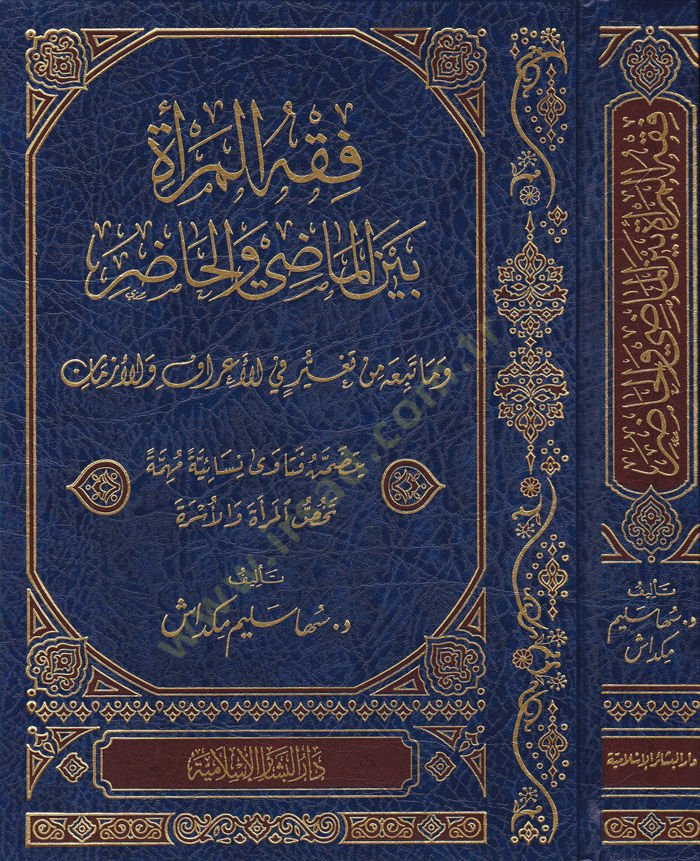 فِقْهُ المَرْأَةِ
بَيْنَ المَاضِي وَالحَاضِرِ
وَمَا تَبِعَهُ مِنْ تَغَيُّرٍ فِي الأَعْرَافِ وَالأَزْمَانِ
يتضمّن فتاوى نسائيّة مُهمّة
تَخُصُّ المَرأة وَالأُسْرَة
تأليف
د. سُها سليم مكداش
دَارُ البَشَائِر الإِسْلَامِيَّة
فِقْهُ المَرْأَةِ بَيْنَ المَاضِي وَالحَاضِرِ
تأليف
د. سُها سليم
مكداش
دار البشائر الإسلاميّة